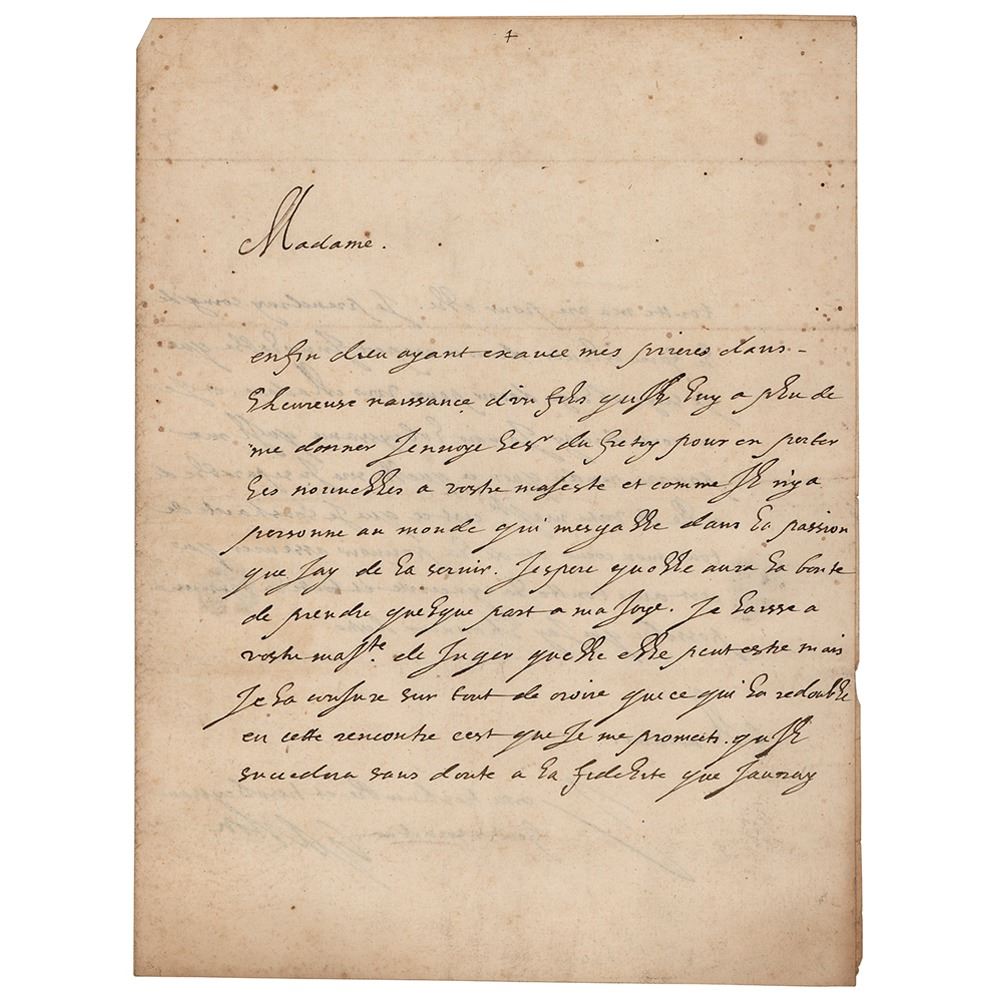 Madame.
enfin dieu ayant exauce mes prieres dans
lheureuse naissance d'un fils quil luy a pleu de
me donner Jenvoye les.r du fretoy pour en porter
les nouvelles a vostre majeste et comme Il n'y a
personne au monde qui mesgalle dans la passion
que Jay de la servir. Jespere quelle aura la bonte
de prendre quelque part a ma Joye. Je laisse a
vostre maj.te de Juger quelle elle peut estre mais
Je la conjure sur tout de croire que ce qui la redouble
en cette rencontre cest que Je me promects quil
succedera sans doute a la fidelite que Jauray